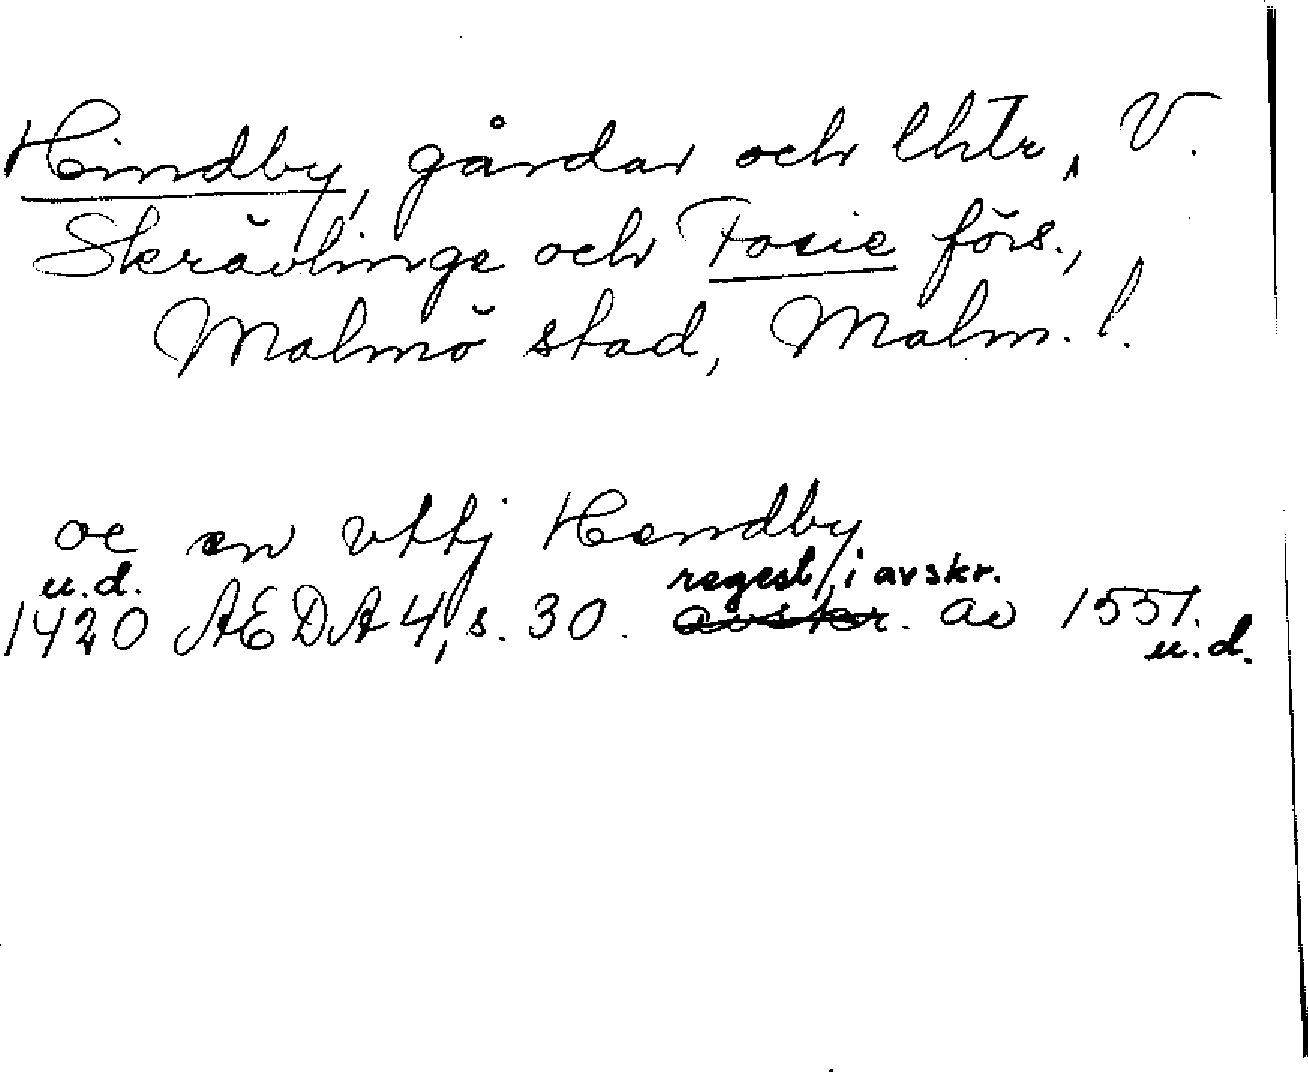 Hindby, gårdar och lhtr, V.
Skrävlinge och Fosie förs.,
Malmö stad, Malm. l.
oc en vttj Hendby
u.d. regest i avskr.
1420 AEDA 4, s. 30. avskr. av 1551.
u.d.